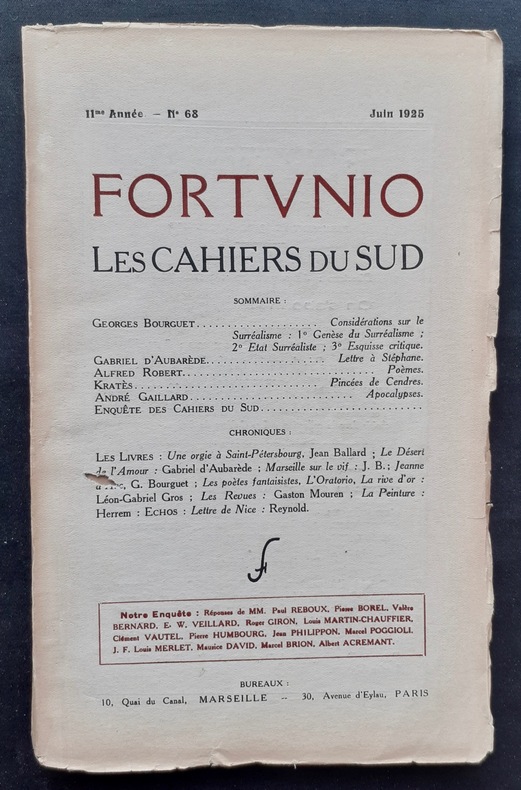 11me Année – No 68 Juin 1925
FORTVNIO
LES CAHIERS DU SUD
SOMMAIRE :
GEORGES BOURGUET................... Considérations sur le
Surréalisme : 1o Genèse du Surréalisme ;
2o Etat Surréaliste ; 3o Esquisse critique.
GABRIEL D'AUBARÈDE................... Lettre à Stéphane.
ALFRED ROBERT............................... Poèmes.
KRATÈS.............................. Pincées de Cendres.
ANDRÉ GAILLARD.......................... Apocalypses.
ENQUÊTE DES CAHIERS DU SUD.........................
CHRONIQUES :
LES LIVRES : Une orgie à Saint-Pétersbourg, Jean Ballard ; Le Désert
de l'Amour : Gabriel d'Aubarède ; Marseille sur le vif : J. B. ; Jeanne
G. Bourguet ; Les poètes fantaisistes, L'Oratorio, La rive d'or :
Léon-Gabriel Gros ; Les Revues : Gaston Mouren ; La Peinture :
Herrem : ECHOS : Lettre de Nice : Reynold.
f
Notre Enquête : Réponses de MM. Paul REBOUX, Pierre BOREL, Valère
BERNARD, E. W. VEILLARD, Roger GIRON, Louis MARTIN-CHAUFFIER,
Clément VAUTEL, Pierre HUMBOURG, Jean PHILIPPON, Marcel POGGIOLI,
J. F. Louis MERLET, Maurice DAVID, Marcel BRION, Albert ACREMANT.
BUREAUX :
10, Quai du Canal, MARSEILLE -- 30, Avenue d'Eylau, PARIS